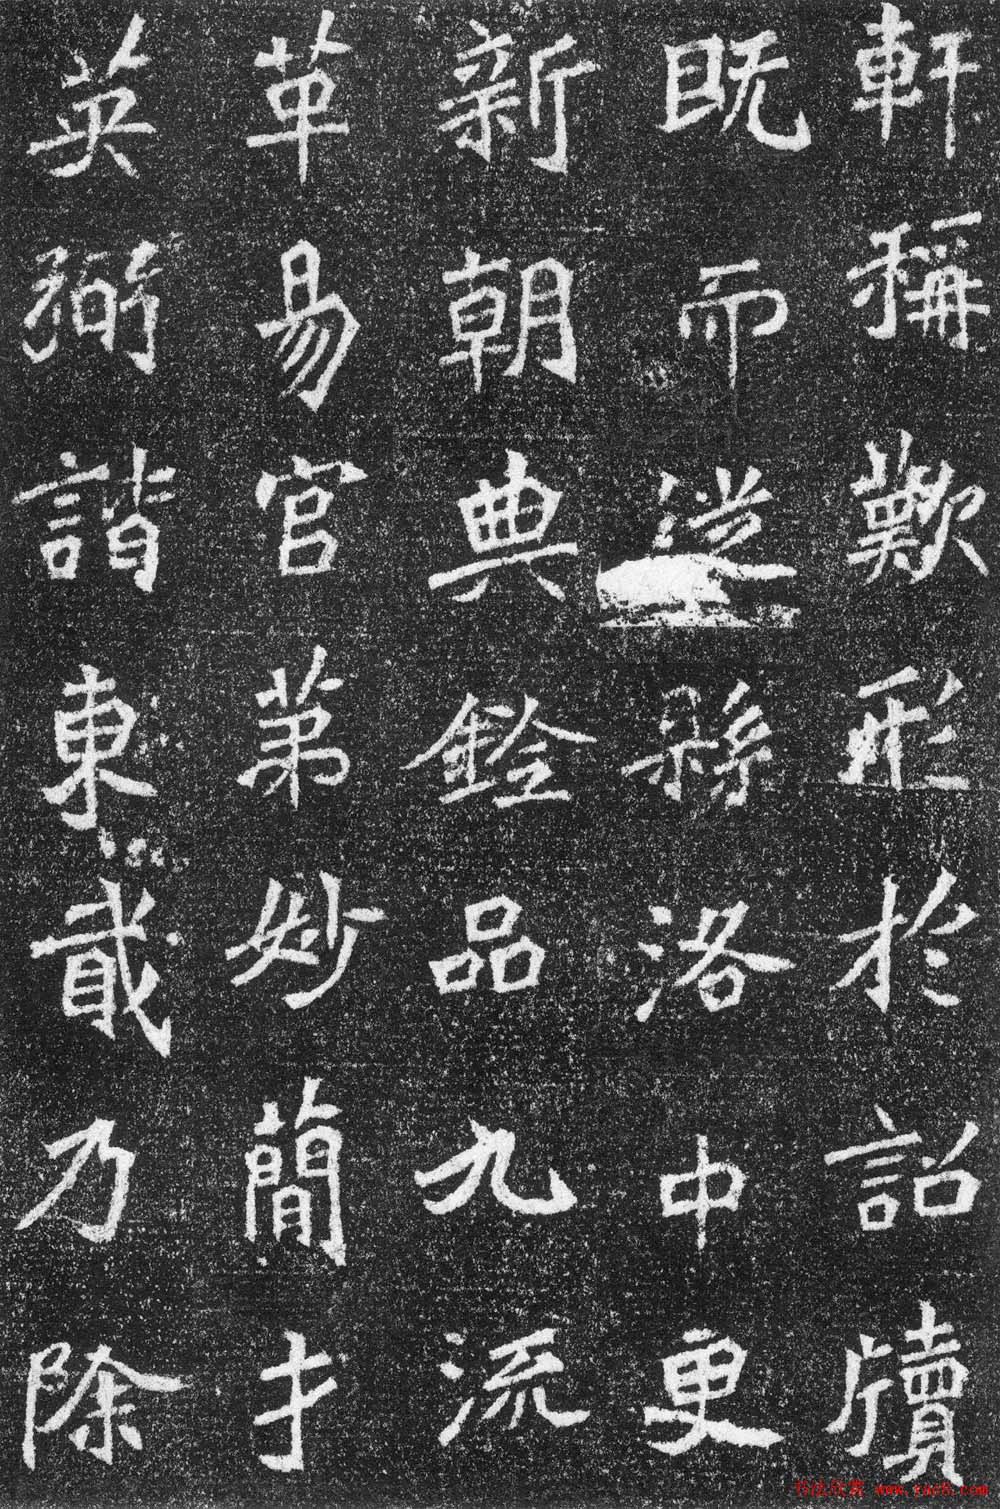 軒稱歎形於詔牘
既而縣洛中更
新朝典銓品九流
革易官第妙簡才
英弼諧東貳乃除
书法欣赏 www.yac8.com